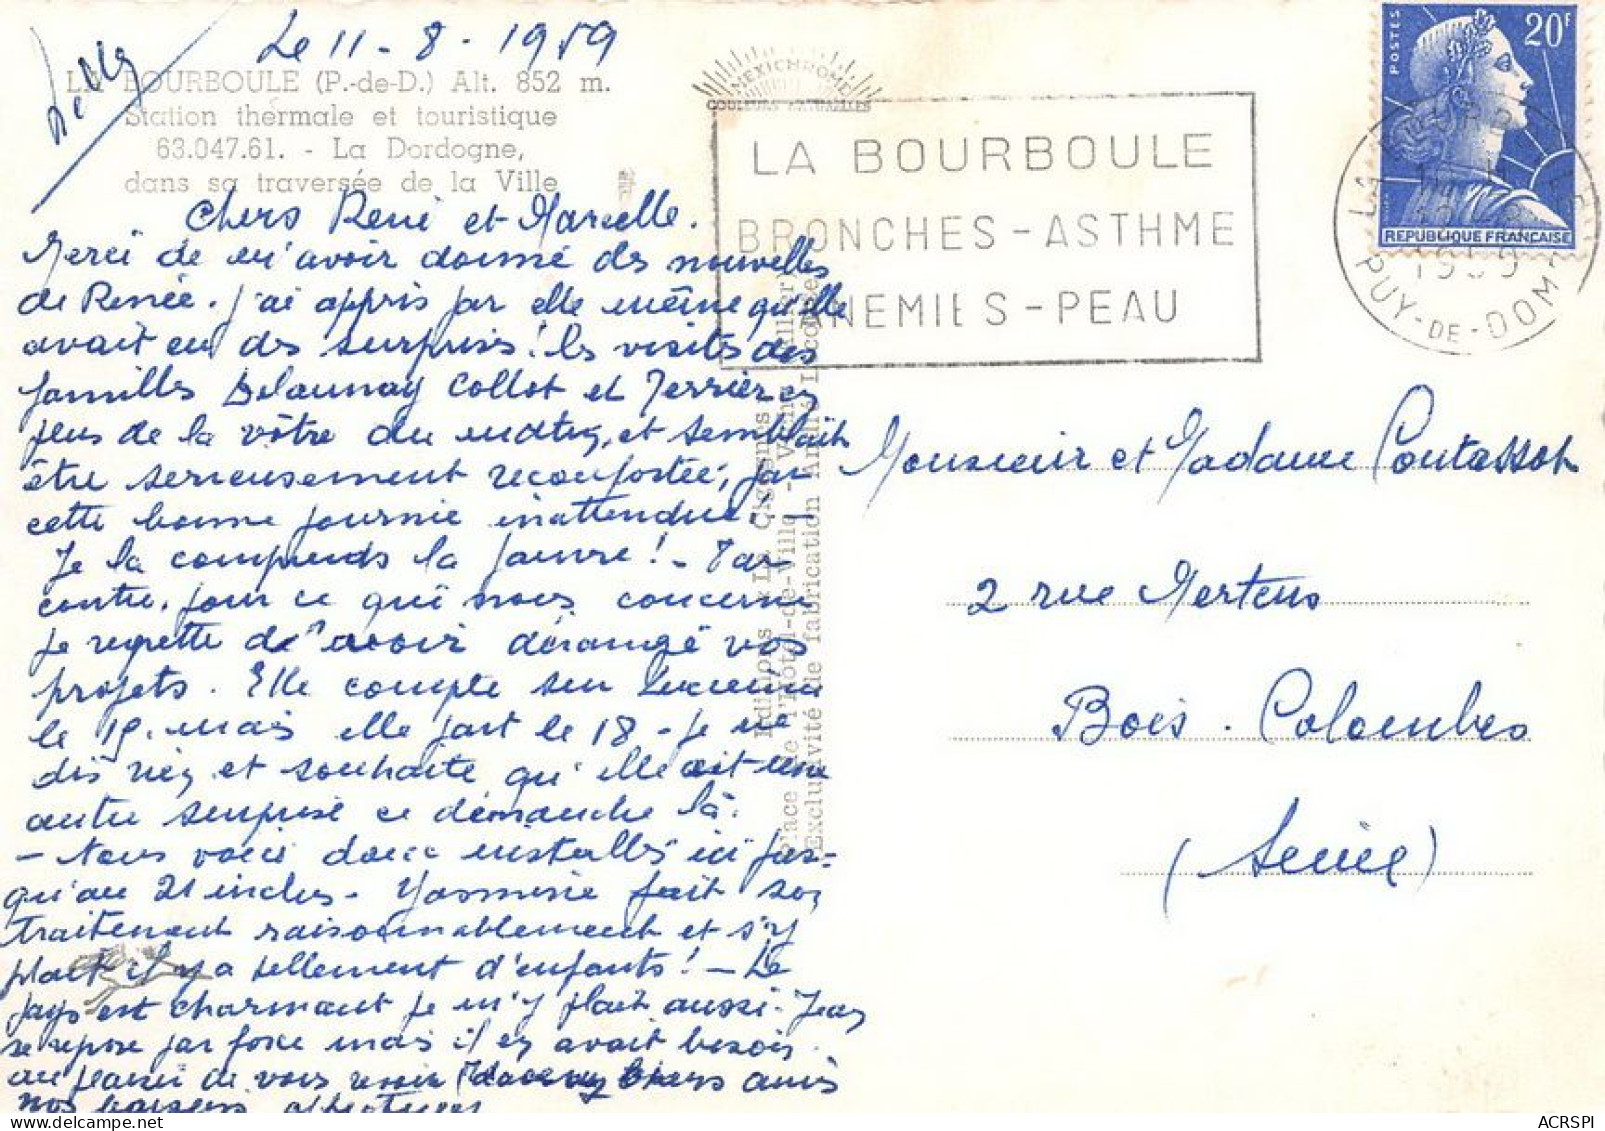 Le 11-8-1959
LA BOURBOULE (P.-de-D.) Alt. 852 m.
Station thermale et touristique
63.047.61. - La Dordogne,
dans sa traversée de la Ville
Chers René et Marcelle.
Merci de m'avoir donné des nouvelles
de Renée. J'ai appris par elle même qu'elle
avait eu des surprises! les visites des
familles Delaunay Collot et Terrier en
plus de la vôtre du matin, et semblait
être serieusement reconfortée, par
cette bonne journée inattendue! -
Je la comprends la pauvre! - Par
contre, pour ce qui nous concerne
je regrette d'avoir dérangé vos
projets. Elle compte sur Lucienne
le 19. mais elle part le 18 - je ne
dis rien et souhaite qu'elle ait une
autre surprise ce dimanche là.
- Nous voici donc installés ici jus=
qu'au 21 inclus - Yasmine fait son
traitement raisonnablement et s'y
plait il y a tellement d'enfants! - Le
pays est charmant je m'y plait aussi. Jean
se repose par force mais il en avait besoin.
au plaisir de vous revoir bien chers amis
nos baisers affectueux
MEXICHROME
COULEURS NATURELLES
LA BOURBOULE
BRONCHES - ASTHME
ANEMIES - PEAU
POSTES
20F
REPUBLIQUE FRANÇAISE
1959
PUY-DE-DOME
Place de l'Hôtel-de-Ville
Exclusivité de fabrication
Monsieur et Madame Coutassot
2 rue Mertens
Bois-Colombes
(Seine)
ACRSPI